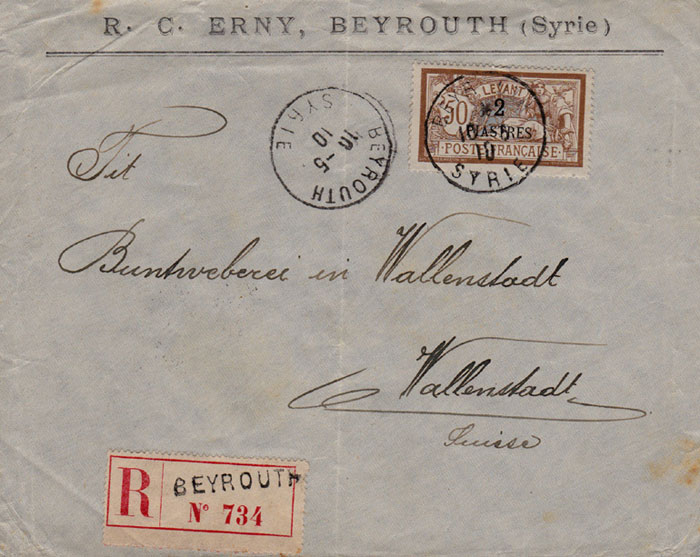 R. C. ERNY, BEYROUTH (Syrie)
50 LEVANT
2
PIASTRES
POSTE FRANÇAISE
BEYROUTH
10 -5
10
SYRIE
10 -5
10
SYRIE
Tit
Buntweberei in Wallenstadt
Wallenstadt
Suisse
R BEYROUTH
Nº 734